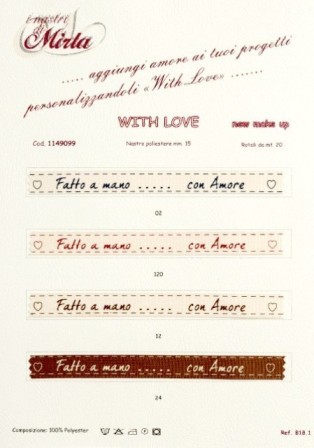 i nastri
di Mirta
..... aggiungi amore ai tuoi progetti
personalizzandoli «With Love» .......
WITH LOVE new make up
Cod. 1149099 Nastro poliestere mm. 15 Rotoli da mt. 20
Fatto a mano ..... con Amore
02
Fatto a mano ..... con Amore
120
Fatto a mano ..... con Amore
12
Fatto a mano ..... con Amore
24
Composizione: 100% Polyester Ref. B18.1